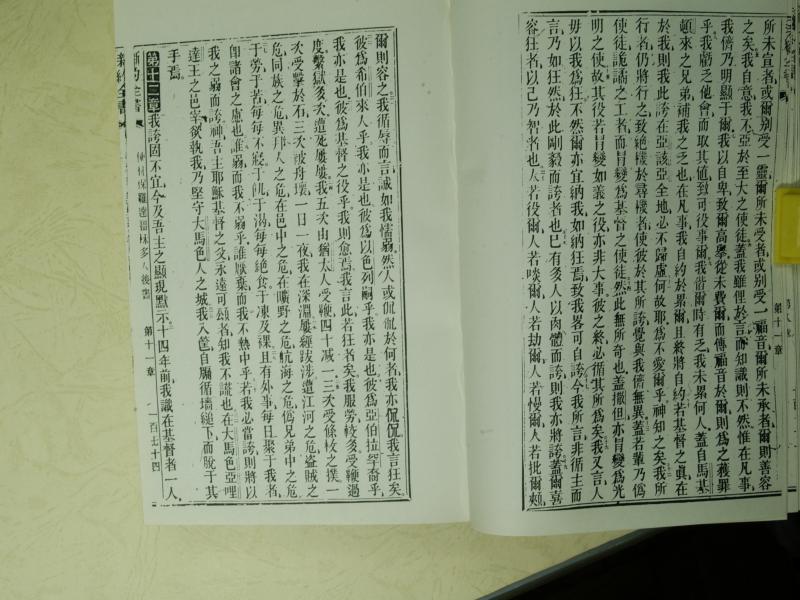 所未宣者或爾別受一靈爾所未受者或別受一福音爾所未承者爾則善容
之矣我自意我不亞於至大之使徒蓋我雖俚於言而知識則不然惟在凡事
我儕乃明顯于爾我以自卑致爾高舉從未費爾而傳福音於爾則為之獲罪
乎我虧乏他會而取其值致可役事爾我偕爾時有乏我未累何人蓋自馬基
頓來之兄弟補我之乏也在凡事我自約於累爾且終將自約若基督之真在
於我則我此誇在亞該亞全地必不歸虛何故耶為不愛爾乎神知之矣我所
行者仍將行之致絕樣於尋樣者使彼於其所誇覺與我儕無異蓋若輩乃偽
使徒詭譎之工者而肖變為基督之使徒然此無所奇也蓋撒但亦肖變為光
明之使故其役若肖變如義之役亦非大事彼之終必循其所為矣我又言人
毋以我為狂不然爾亦宜納我如納狂焉致我畧可自誇今我所言非循主而
言乃如狂然於此剛毅而誇者也巳有多人以肉體而誇則我亦將誇蓋爾喜
容狂者以己乃智者也人若役爾人若啖爾人若劫爾人若慢爾人若批爾頰
第十一章
爾則容之我循辱而言誠如我懦弱然人或侃侃於何者我亦侃侃我言狂矣
彼為希伯來人乎我亦是也彼為以色列嗣乎我亦是也彼為亞伯拉罕裔乎
我亦是也彼為基督之役乎我則愈焉我言此若狂者矣我服勞較多受鞭過
度繫獄多次遭死屢屢我五次由猶太人受鞭四十減一三次受條杖之撲一
次受擊於石三次被舟壞一日一夜我在深淵屢經跋涉遭江河之危盜賊之
危同族之危異邦人之危在邑中之危在曠野之危航海之危偽兄弟中之危
于勞于苦每每不寢于飢于渴每每絕食于凍及裸且有外事每日聚于我者
即諸會之慮也誰弱而我不弱乎誰厭棄而我不熱中乎若我必當誇則將以
我之弱而誇神吾主耶穌基督之父永遠可頌者知我不謊也在大馬色亞哩
達王之邑宰欲執我乃堅守大馬色人之城我入筐自牖循墻縋下而脫于其
手焉
第十二章我誇固不宜今及吾主之顯現默示十四年前我識在基督者一人
新約全書 使徒保羅達哥林多人後書 第十一章 一百七十四
新約全書